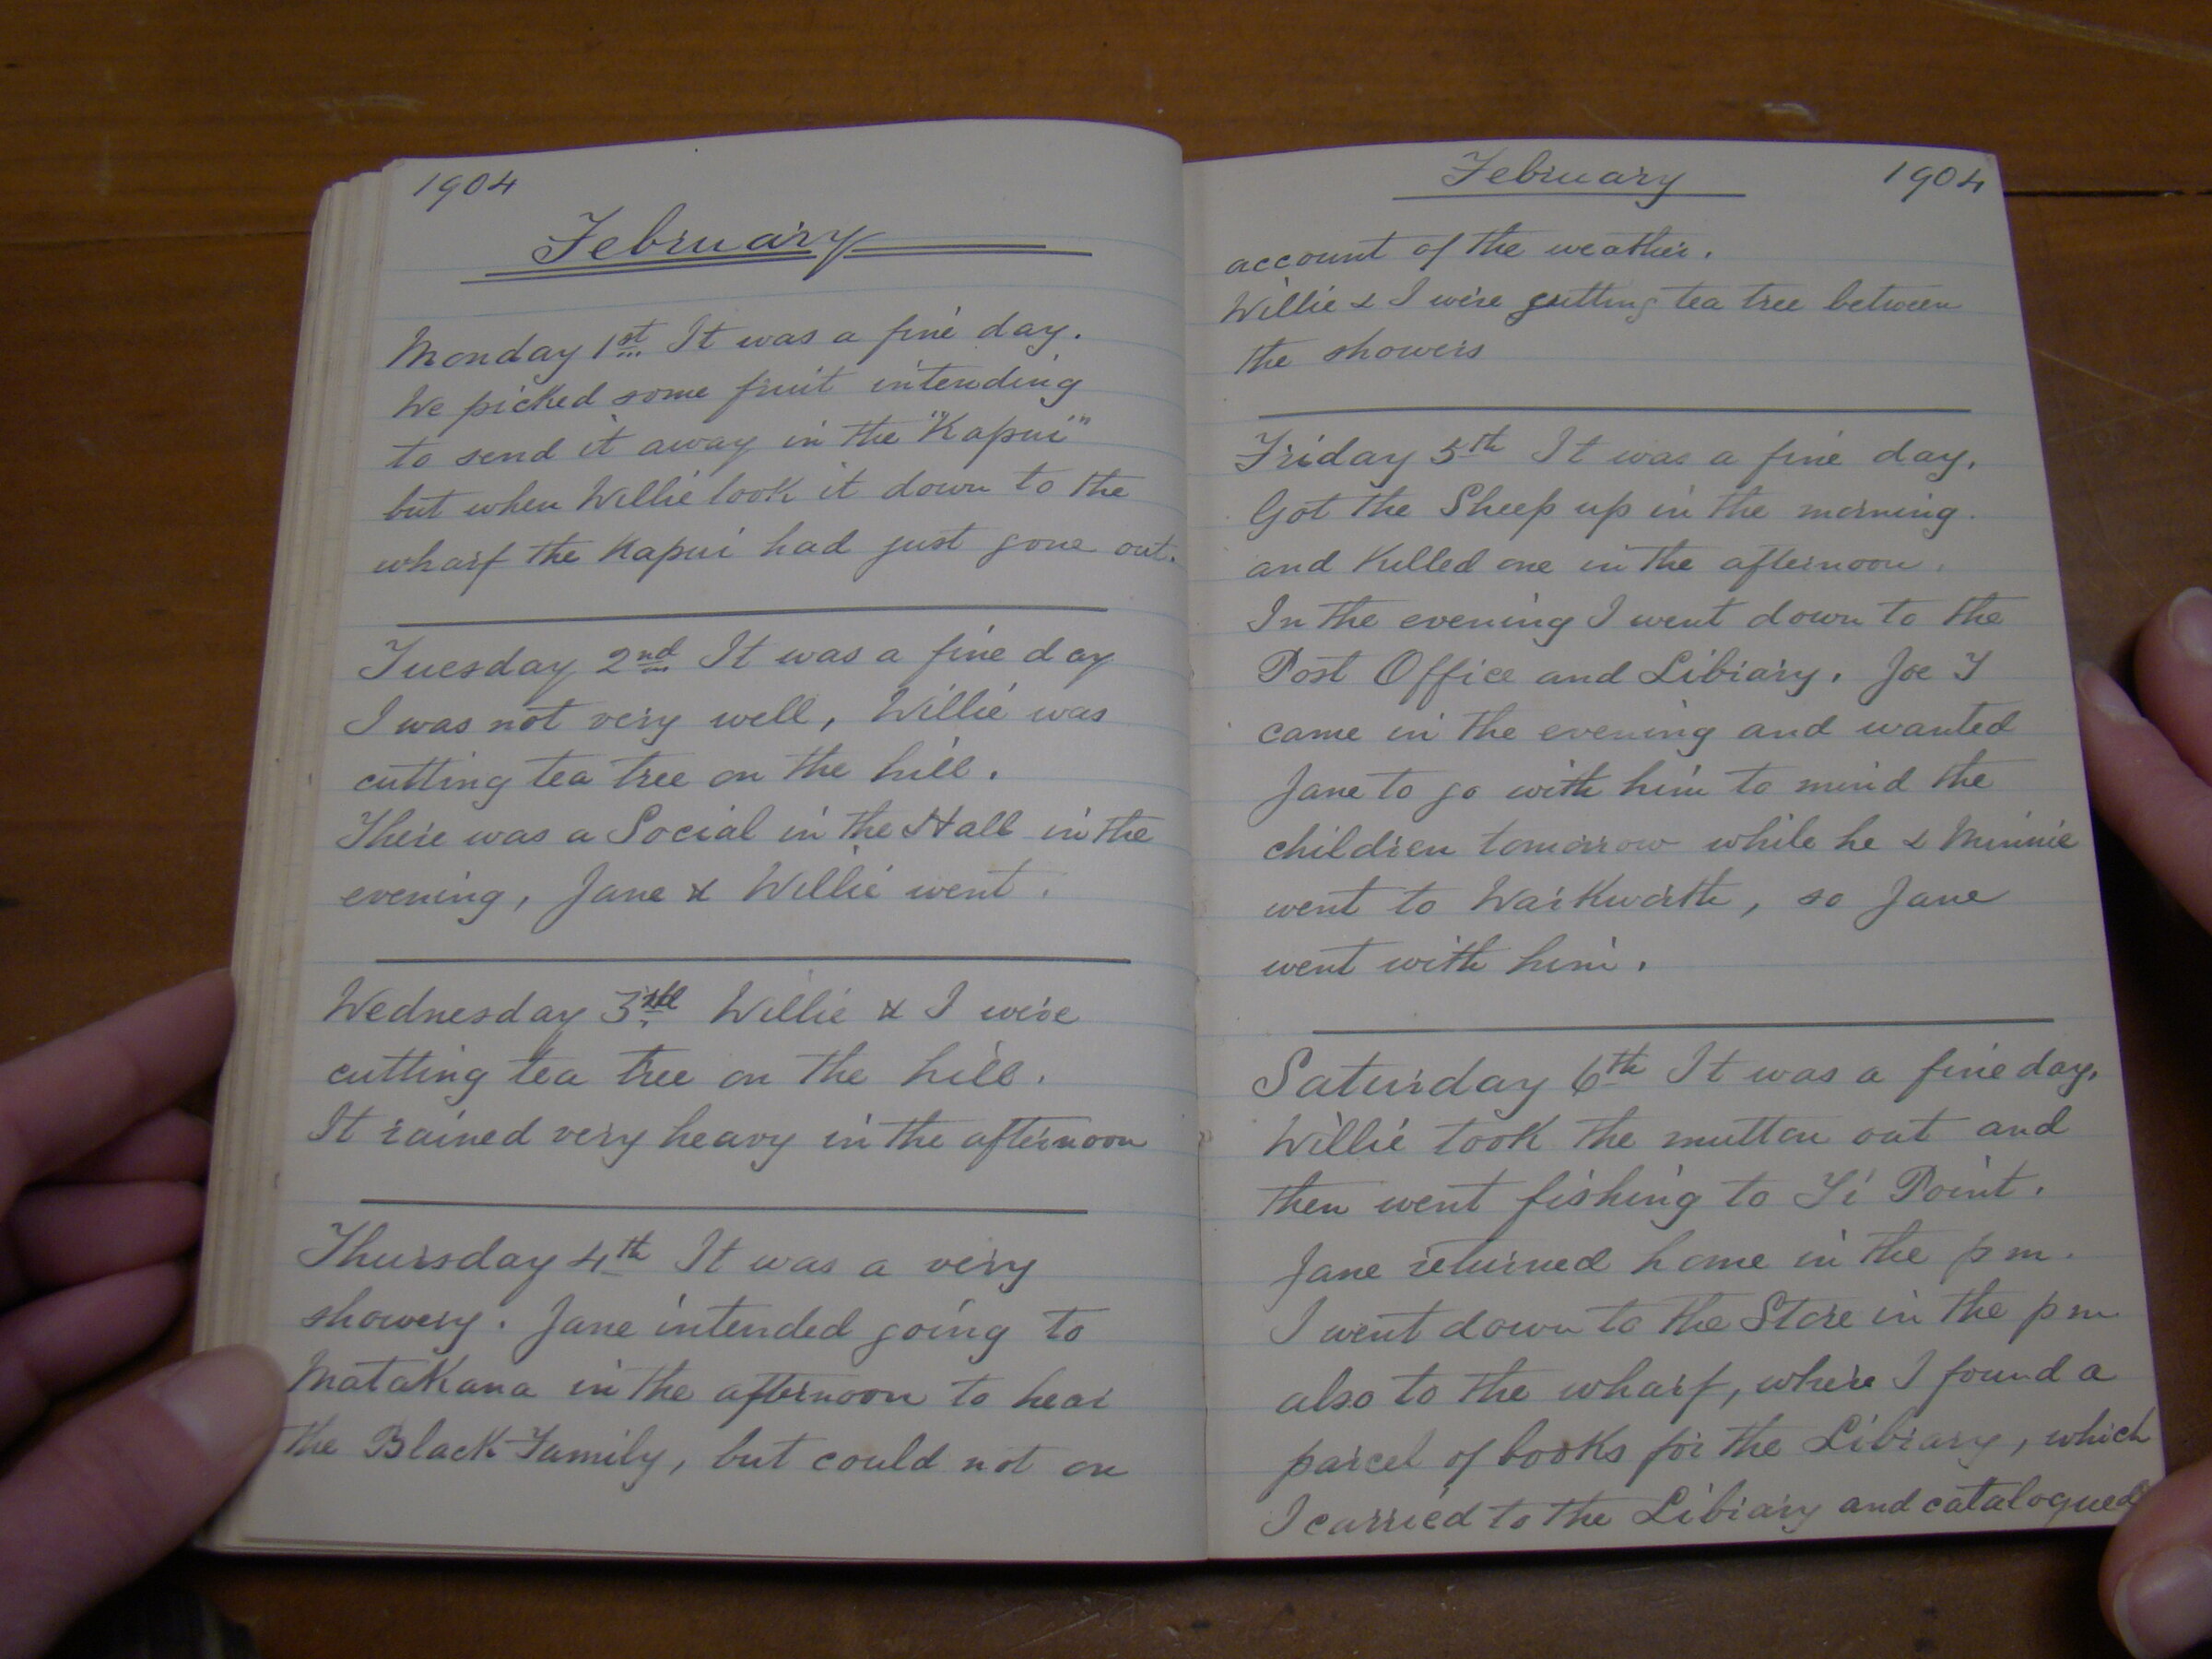 1904
February
Monday 1st It was a fine day.
We picked some fruit intending
to send it away in the "Kapui"
but when Willie took it down to the
wharf the Kapui had just gone out.
Tuesday 2nd It was a fine day
I was not very well, Willie was
cutting tea tree on the hill.
There was a Social in the Hall in the
evening, Jane & Willie went.
Wednesday 3rd Willie & I were
cutting tea tree on the hill.
It rained very heavy in the afternoon
Thursday 4th It was a very
showery. Jane intended going to
Matakana in the afternoon to hear
the Black Family, but could not on
February 1904
account of the weather.
Willie & I were cutting tea tree between
the showers
Friday 5th It was a fine day.
Got the Sheep up in the morning.
and killed one in the afternoon.
In the evening I went down to the
Post Office and Library. Joe T
came in the evening and wanted
Jane to go with him to mind the
children tomorrow while he & Minnie
went to Warkworth, so Jane
went with him.
Saturday 6th It was a fine day.
Willie took the mutton out and
then went fishing to Ti Point.
Jane returned home in the pm.
I went down to the Store in the pm
also to the wharf, where I found a
parcel of books for the Library, which
I carried to the Library and catalogued